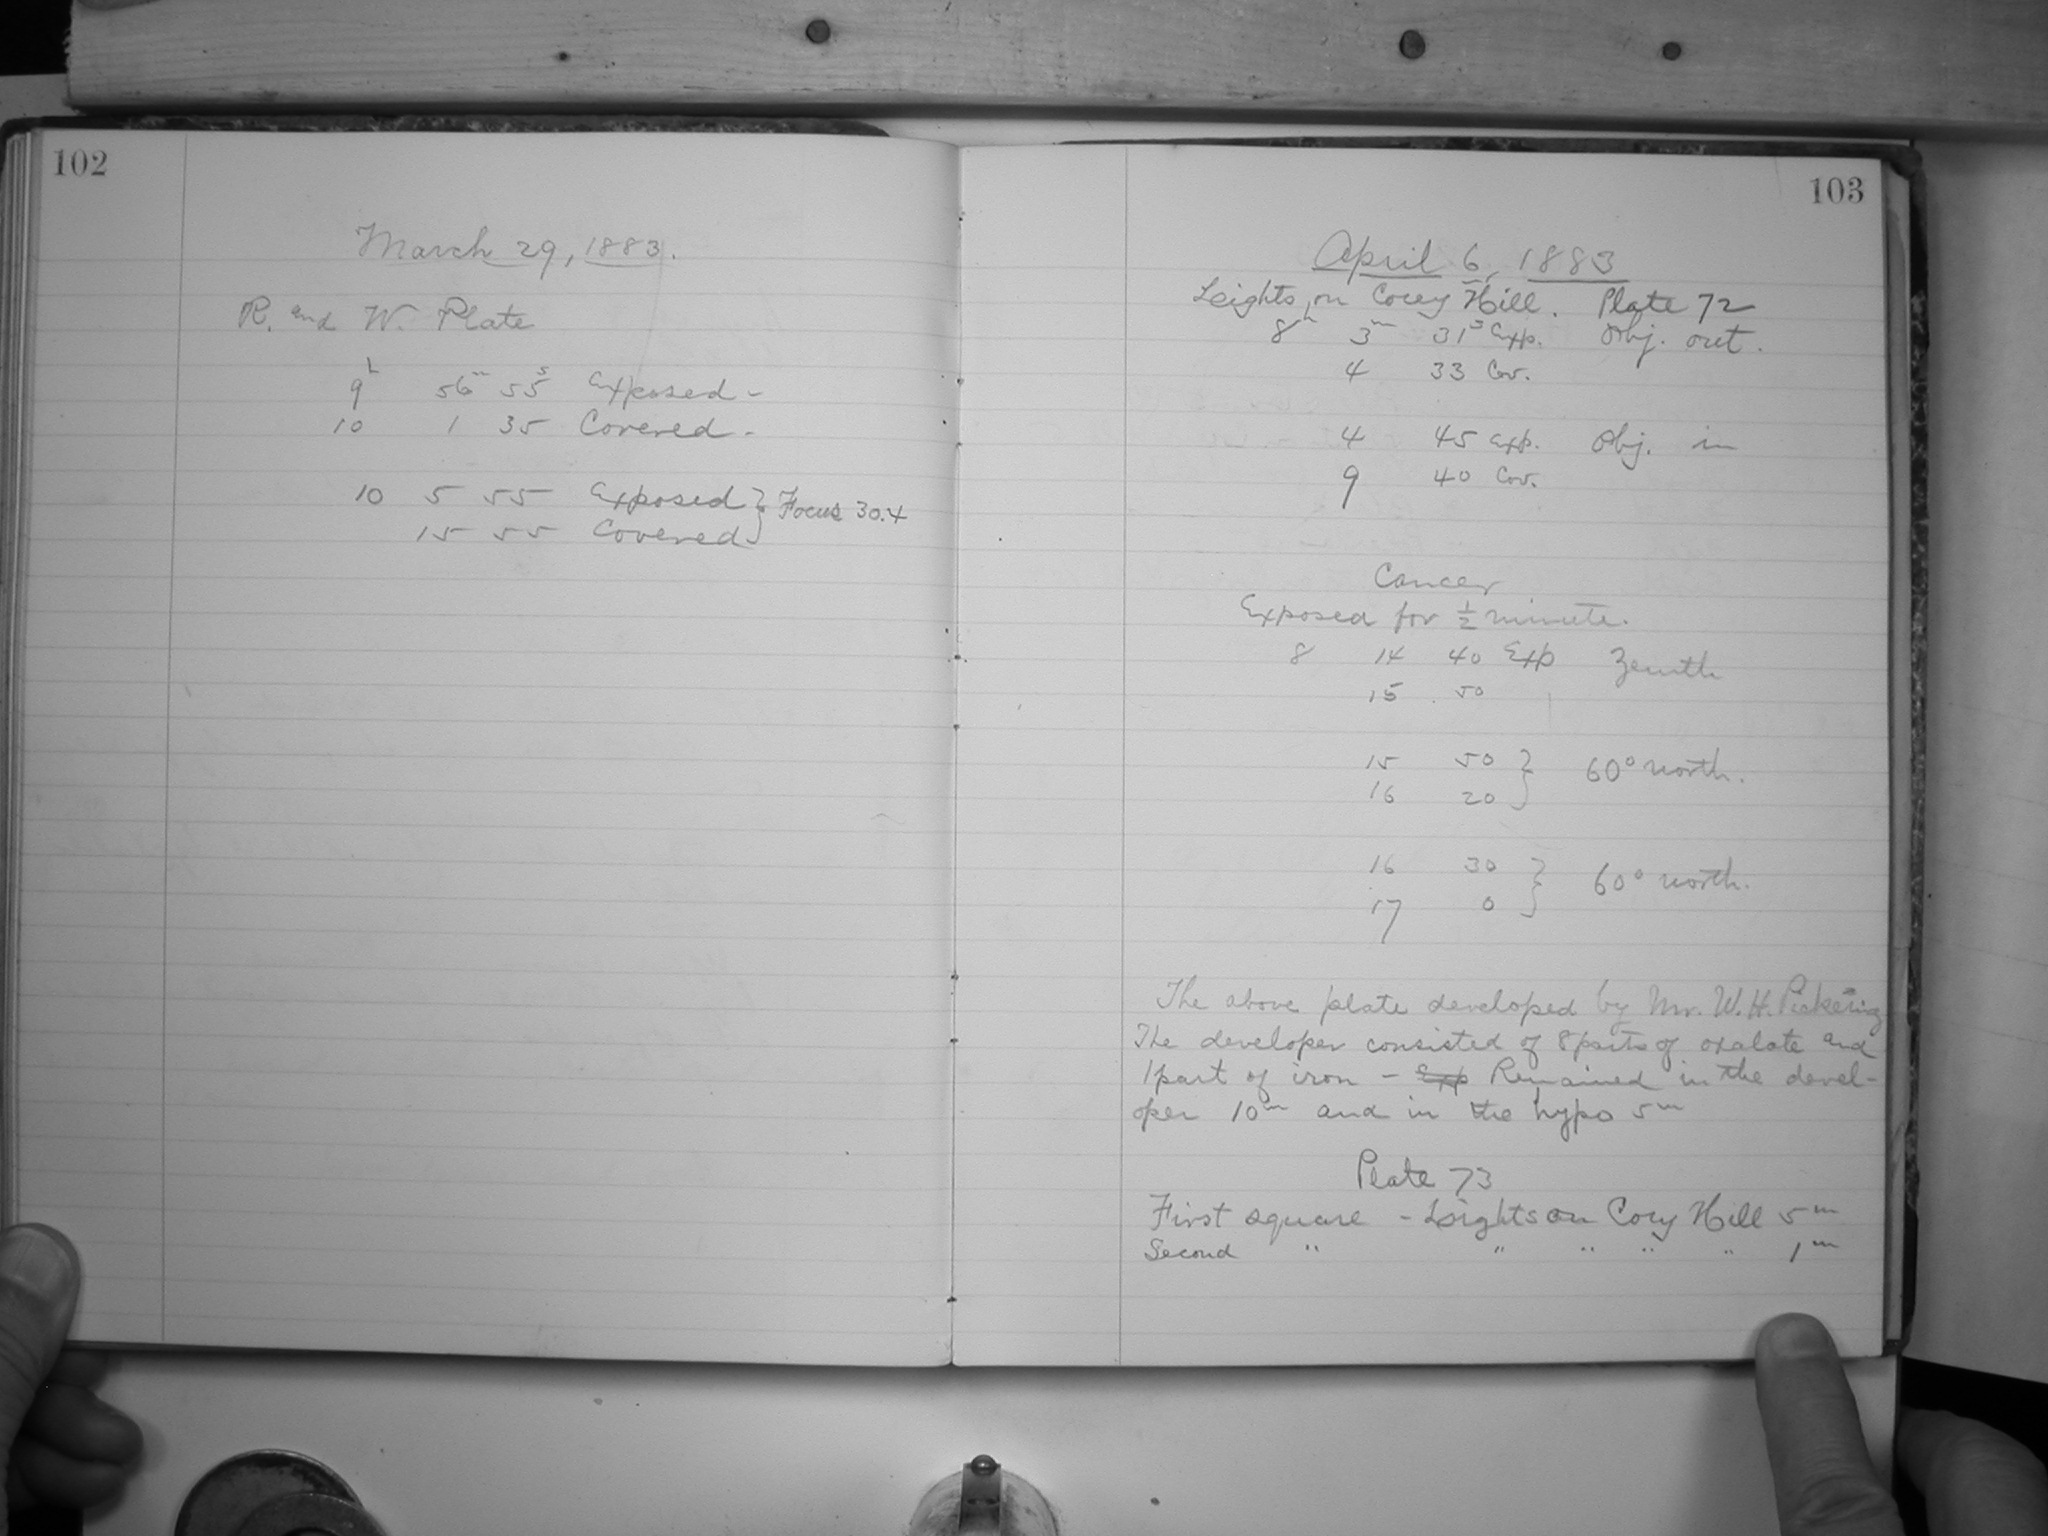 102
March 29, 1883.
R. and W. Plate
9h 56m 55s Exposed -
10 1 35 Covered -
10 5 55 Exposed } Focus 30.4
15 55 Covered
103
April 6, 1883
Lights on Corey Hill. Plate 72
8h 3m 31s Exp. Obj. out.
4 33 Cov.
4 45 Exp. Obj. in
9 40 Cov.
Cancer
Exposed for ½ minute.
8 14 40 Exp Zenith
15 50
15 50 } 60° north.
16 20
16 30 } 60° north.
17 0
The above plate developed by Mr. W. H. Pickering
The developer consisted of 8 parts of oxalate and
1 part of iron - Exp Remained in the devel-
oper 10m and in the hypo 5m
Plate 73
First square - Lights on Cory Hill 5m
Second " " " " " 1m